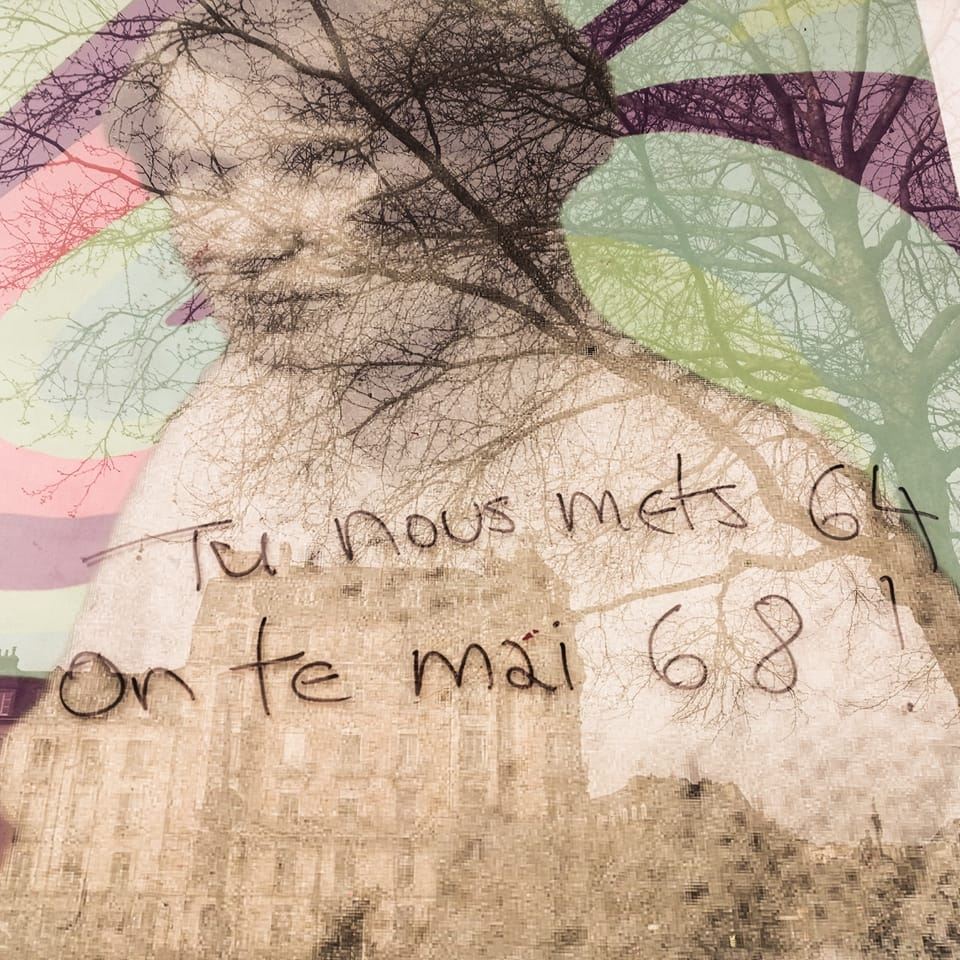 Tu nous mets 64
On te maï 68 !